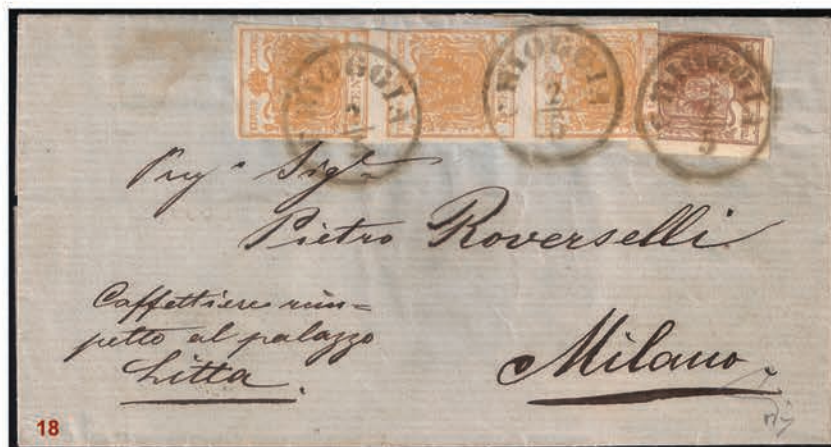 CHIOGGIA
2/5
CHIOGGIA
2/5
CHIOGGIA
2/5
Preg.º Sigr
Pietro Roverselli
Caffettiere rim=
petto al palazzo
Litta.
Milano.
18